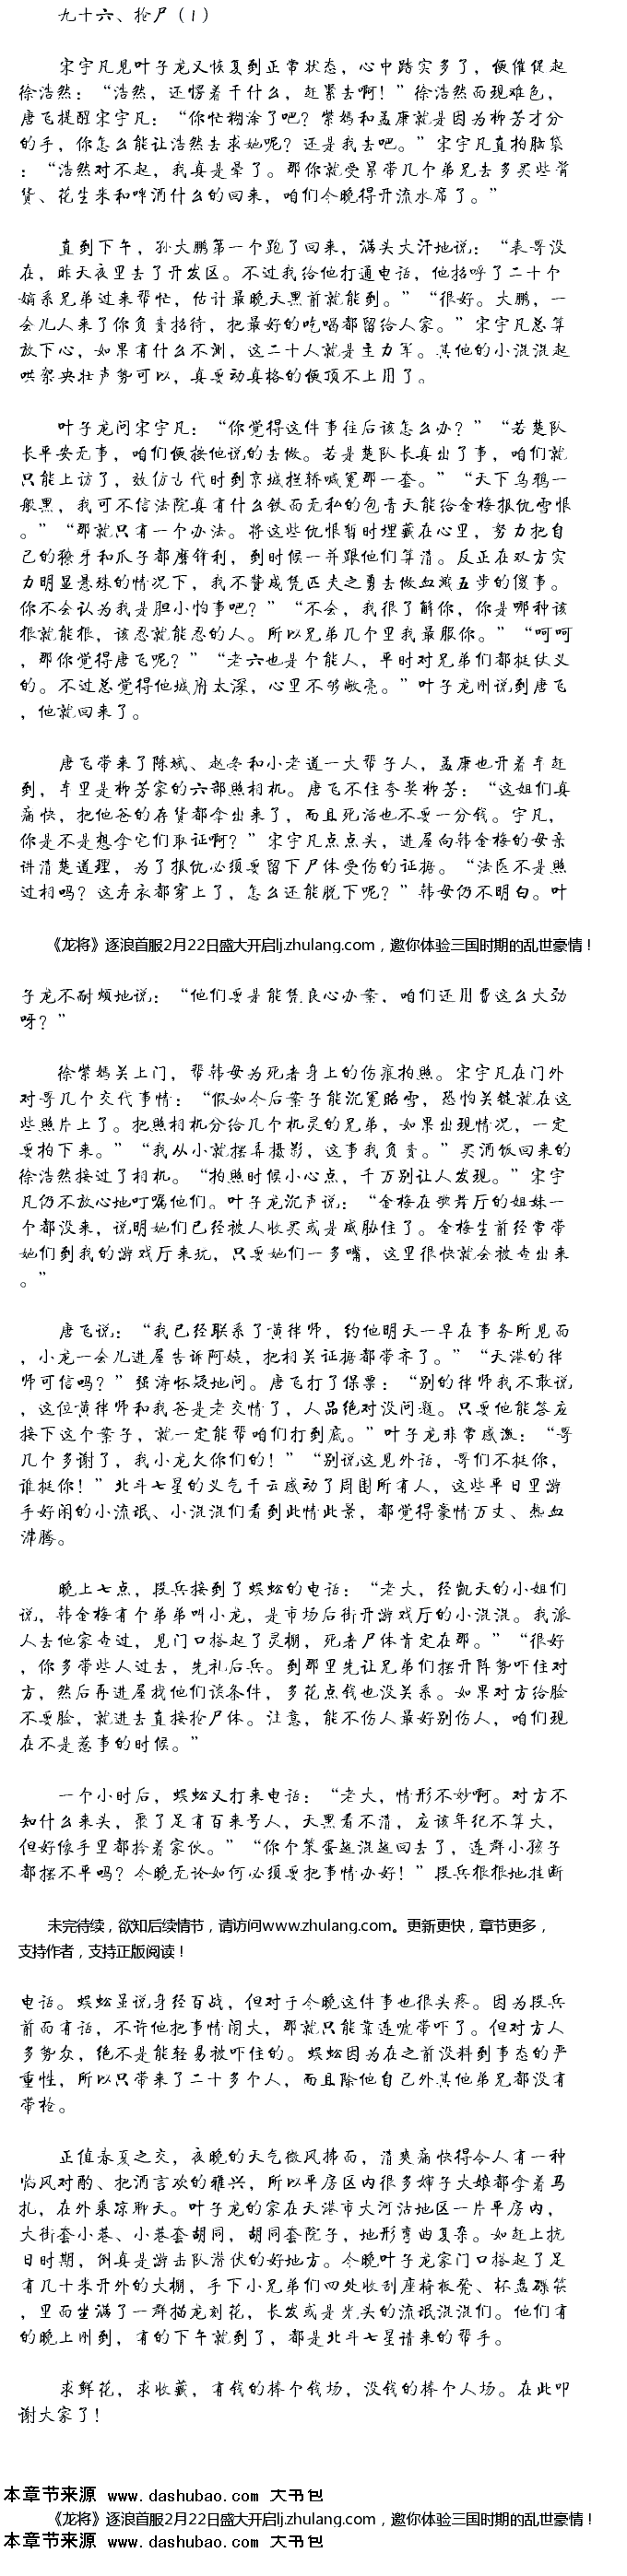 九十六、抢尸（1）
宋宇凡见叶子龙又恢复到正常状态，心中踏实多了，便催促起
徐浩然：“浩然，还愣着干什么，赶紧去啊！”徐浩然面现难色，
唐飞提醒宋宇凡：“你忙糊涂了吧？紫嫣和孟康就是因为柳芳才分
的手，你怎么能让浩然去求她呢？还是我去吧。”宋宇凡直拍脑袋
：“浩然对不起，我真是晕了。那你就受累带几个弟兄去多买些背
货、花生米和啤酒什么的回来，咱们今晚得开流水席了。”
直到下午，孙大鹏第一个跑了回来，满头大汗地说：“表哥没
在，昨天夜里去了开发区。不过我给他打通电话，他招呼了二十个
嫡系兄弟过来帮忙，估计最晚天黑前就能到。”“很好。大鹏，一
会儿人来了你负责招待，把最好的吃喝都留给人家。”宋宇凡总算
放下心，如果有什么不测，这二十人就是主力军。其他的小混混起
哄架央壮声势可以，真要动真格的便顶不上用了。
叶子龙问宋宇凡：“你觉得这件事往后该怎么办？”“若楚队
长平安无事，咱们便按他说的去做。若是楚队长真出了事，咱们就
只能上访了，效仿古代时到京城拦轿喊冤那一套。”“天下乌鸦一
般黑，我可不信法院真有什么铁面无私的包青天能给金梅报仇雪恨
。”“那就只有一个办法。将这些仇恨暂时埋藏在心里，努力把自
己的獠牙和爪子都磨锋利，到时候一并跟他们算清。反正在双方实
力明显悬殊的情况下，我不赞成凭匹夫之勇去做血溅五步的傻事。
你不会认为我是胆小怕事吧？”“不会，我很了解你，你是哪种该
狠就能狠，该忍就能忍的人。所以兄弟几个里我最服你。”“呵呵
，那你觉得唐飞呢？”“老六也是个能人，平时对兄弟们都挺仗义
的。不过总觉得他城府太深，心里不够敞亮。”叶子龙刚说到唐飞
，他就回来了。
唐飞带来了陈斌、赵冬和小老道一大帮子人，孟康也开着车赶
到，车里是柳芳家的六部照相机。唐飞不住夸奖柳芳：“这姐们真
痛快，把他爸的存货都拿出来了，而且死活也不要一分钱。宇凡，
你是不是想拿它们取证啊？”宋宇凡点点头，进屋向韩金梅的母亲
讲清楚道理，为了报仇必须要留下尸体受伤的证据。“法医不是照
过相吗？这寿衣都穿上了，怎么还能脱下呢？”韩母仍不明白。叶
《龙将》逐浪首服2月22日盛大开启lj.zhulang.com，邀你体验三国时期的乱世豪情！
子龙不耐烦地说：“他们要是能凭良心办案，咱们还用费这么大劲
呀？”
徐紫嫣关上门，帮韩母为死者身上的伤痕拍照。宋宇凡在门外
对哥几个交代事情：“假如今后案子能沉冤昭雪，恐怕关键就在这
些照片上了。把照相机分给几个机灵的兄弟，如果出现情况，一定
要拍下来。”“我从小就摆弄摄影，这事我负责。”买酒饭回来的
徐浩然接过了相机。“拍照时候小心点，千万别让人发现。”宋宇
凡仍不放心地叮嘱他们。叶子龙沉声说：“金梅在歌舞厅的姐妹一
个都没来，说明她们已经被人收买或是威胁住了。金梅生前经常带
她们到我的游戏厅来玩，只要她们一多嘴，这里很快就会被查出来
。”
唐飞说：“我已经联系了黄律师，约他明天一早在事务所见面
，小龙一会儿进屋告诉阿姨，把相关证据都带齐了。”“天港的律
师可信吗？”强涛怀疑地问。唐飞打了保票：“别的律师我不敢说
，这位黄律师和我爸是老交情了，人品绝对没问题。只要他能答应
接下这个案子，就一定能帮咱们打到底。”叶子龙非常感激：“哥
几个多谢了，我小龙欠你们的！”“别说这见外话，哥们不挺你，
谁挺你！”北斗七星的义气干云感动了周围所有人，这些平日里游
手好闲的小流氓、小混混们看到此情此景，都觉得豪情万丈、热血
沸腾。
晚上七点，段兵接到了蜈蚣的电话：“老大，经凯天的小姐们
说，韩金梅有个弟弟叫小龙，是市场后街开游戏厅的小混混。我派
人去他家查过，见门口搭起了灵棚，死者尸体肯定在那。”“很好
，你多带些人过去，先礼后兵。到那里先让兄弟们摆开阵势吓住对
方，然后再进屋找他们谈条件，多花点钱也没关系。如果对方给脸
不要脸，就进去直接抢尸体。注意，能不伤人最好别伤人，咱们现
在不是惹事的时候。”
一个小时后，蜈蚣又打来电话：“老大，情形不妙啊。对方不
知什么来头，聚了足有百来号人，天黑看不清，应该年纪不算大，
但好像手里都拎着家伙。”“你个笨蛋越混越回去了，连群小孩子
都摆不平吗？今晚无论如何必须要把事情办好！”段兵狠狠地挂断
未完待续，欲知后续情节，请访问www.zhulang.com。更新更快，章节更多，
支持作者，支持正版阅读！
电话。蜈蚣虽说身经百战，但对于今晚这件事也很头疼。因为段兵
前面有话，不许他把事情闹大，那就只能靠连唬带吓了。但对方人
多势众，绝不是能轻易被吓住的。蜈蚣因为在之前没料到事态的严
重性，所以只带来了二十多个人，而且除他自己外其他弟兄都没有
带枪。
正值春夏之交，夜晚的天气微风拂面，清爽痛快得令人有一种
临风对酌、把酒言欢的雅兴，所以平房区内很多婶子大娘都拿着马
扎，在外乘凉聊天。叶子龙的家在天港市大河沽地区一片平房内，
大街套小巷、小巷套胡同，胡同套院子，地形弯曲复杂。如赶上抗
日时期，倒真是游击队潜伏的好地方。今晚叶子龙家门口搭起了足
有几十米开外的大棚，手下小兄弟们四处收刮座椅板凳、杯盏碟筷
，里面坐满了一群描龙刺花，长发或是光头的流氓混混们。他们有
的晚上刚到，有的下午就到了，都是北斗七星请来的帮手。
求鲜花，求收藏，有钱的捧个钱场，没钱的捧个人场。在此叩
谢大家了！
本章节来源 www.dashubao.com 大书包
《龙将》逐浪首服2月22日盛大开启lj.zhulang.com，邀你体验三国时期的乱世豪情！
本章节来源 www.dashubao.com 大书包